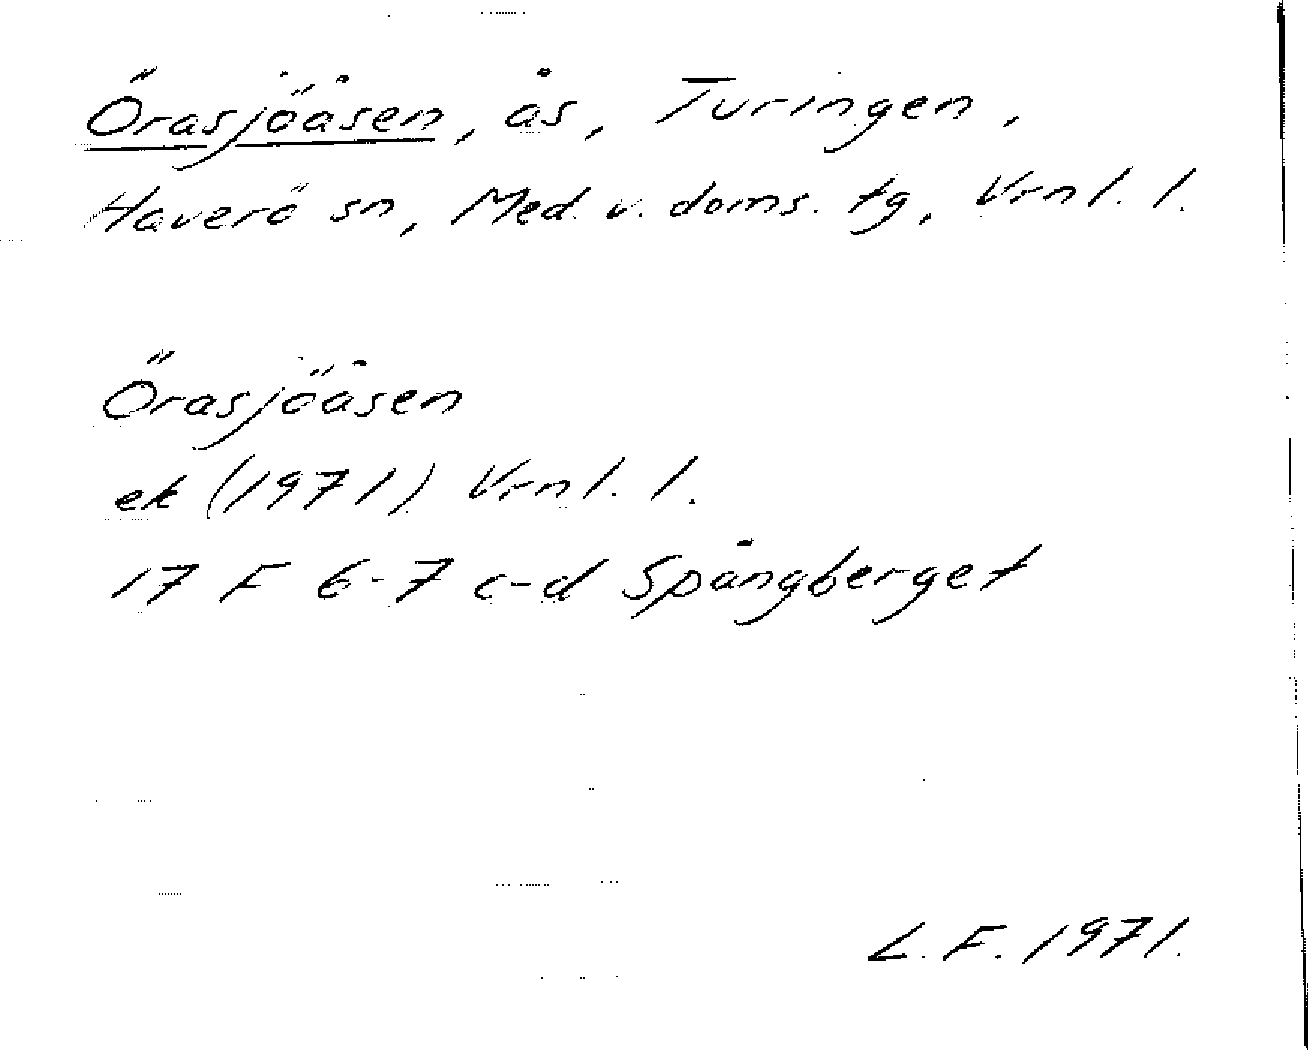 Örasjöåsen, ås, Turingen,
Haverö sn, Med. v. doms. tg, Vrnl. l.
Örasjöåsen
ek (1971) Vrnl. l.
17 F 6-7 c-d Spångberget
L. F. 1971.